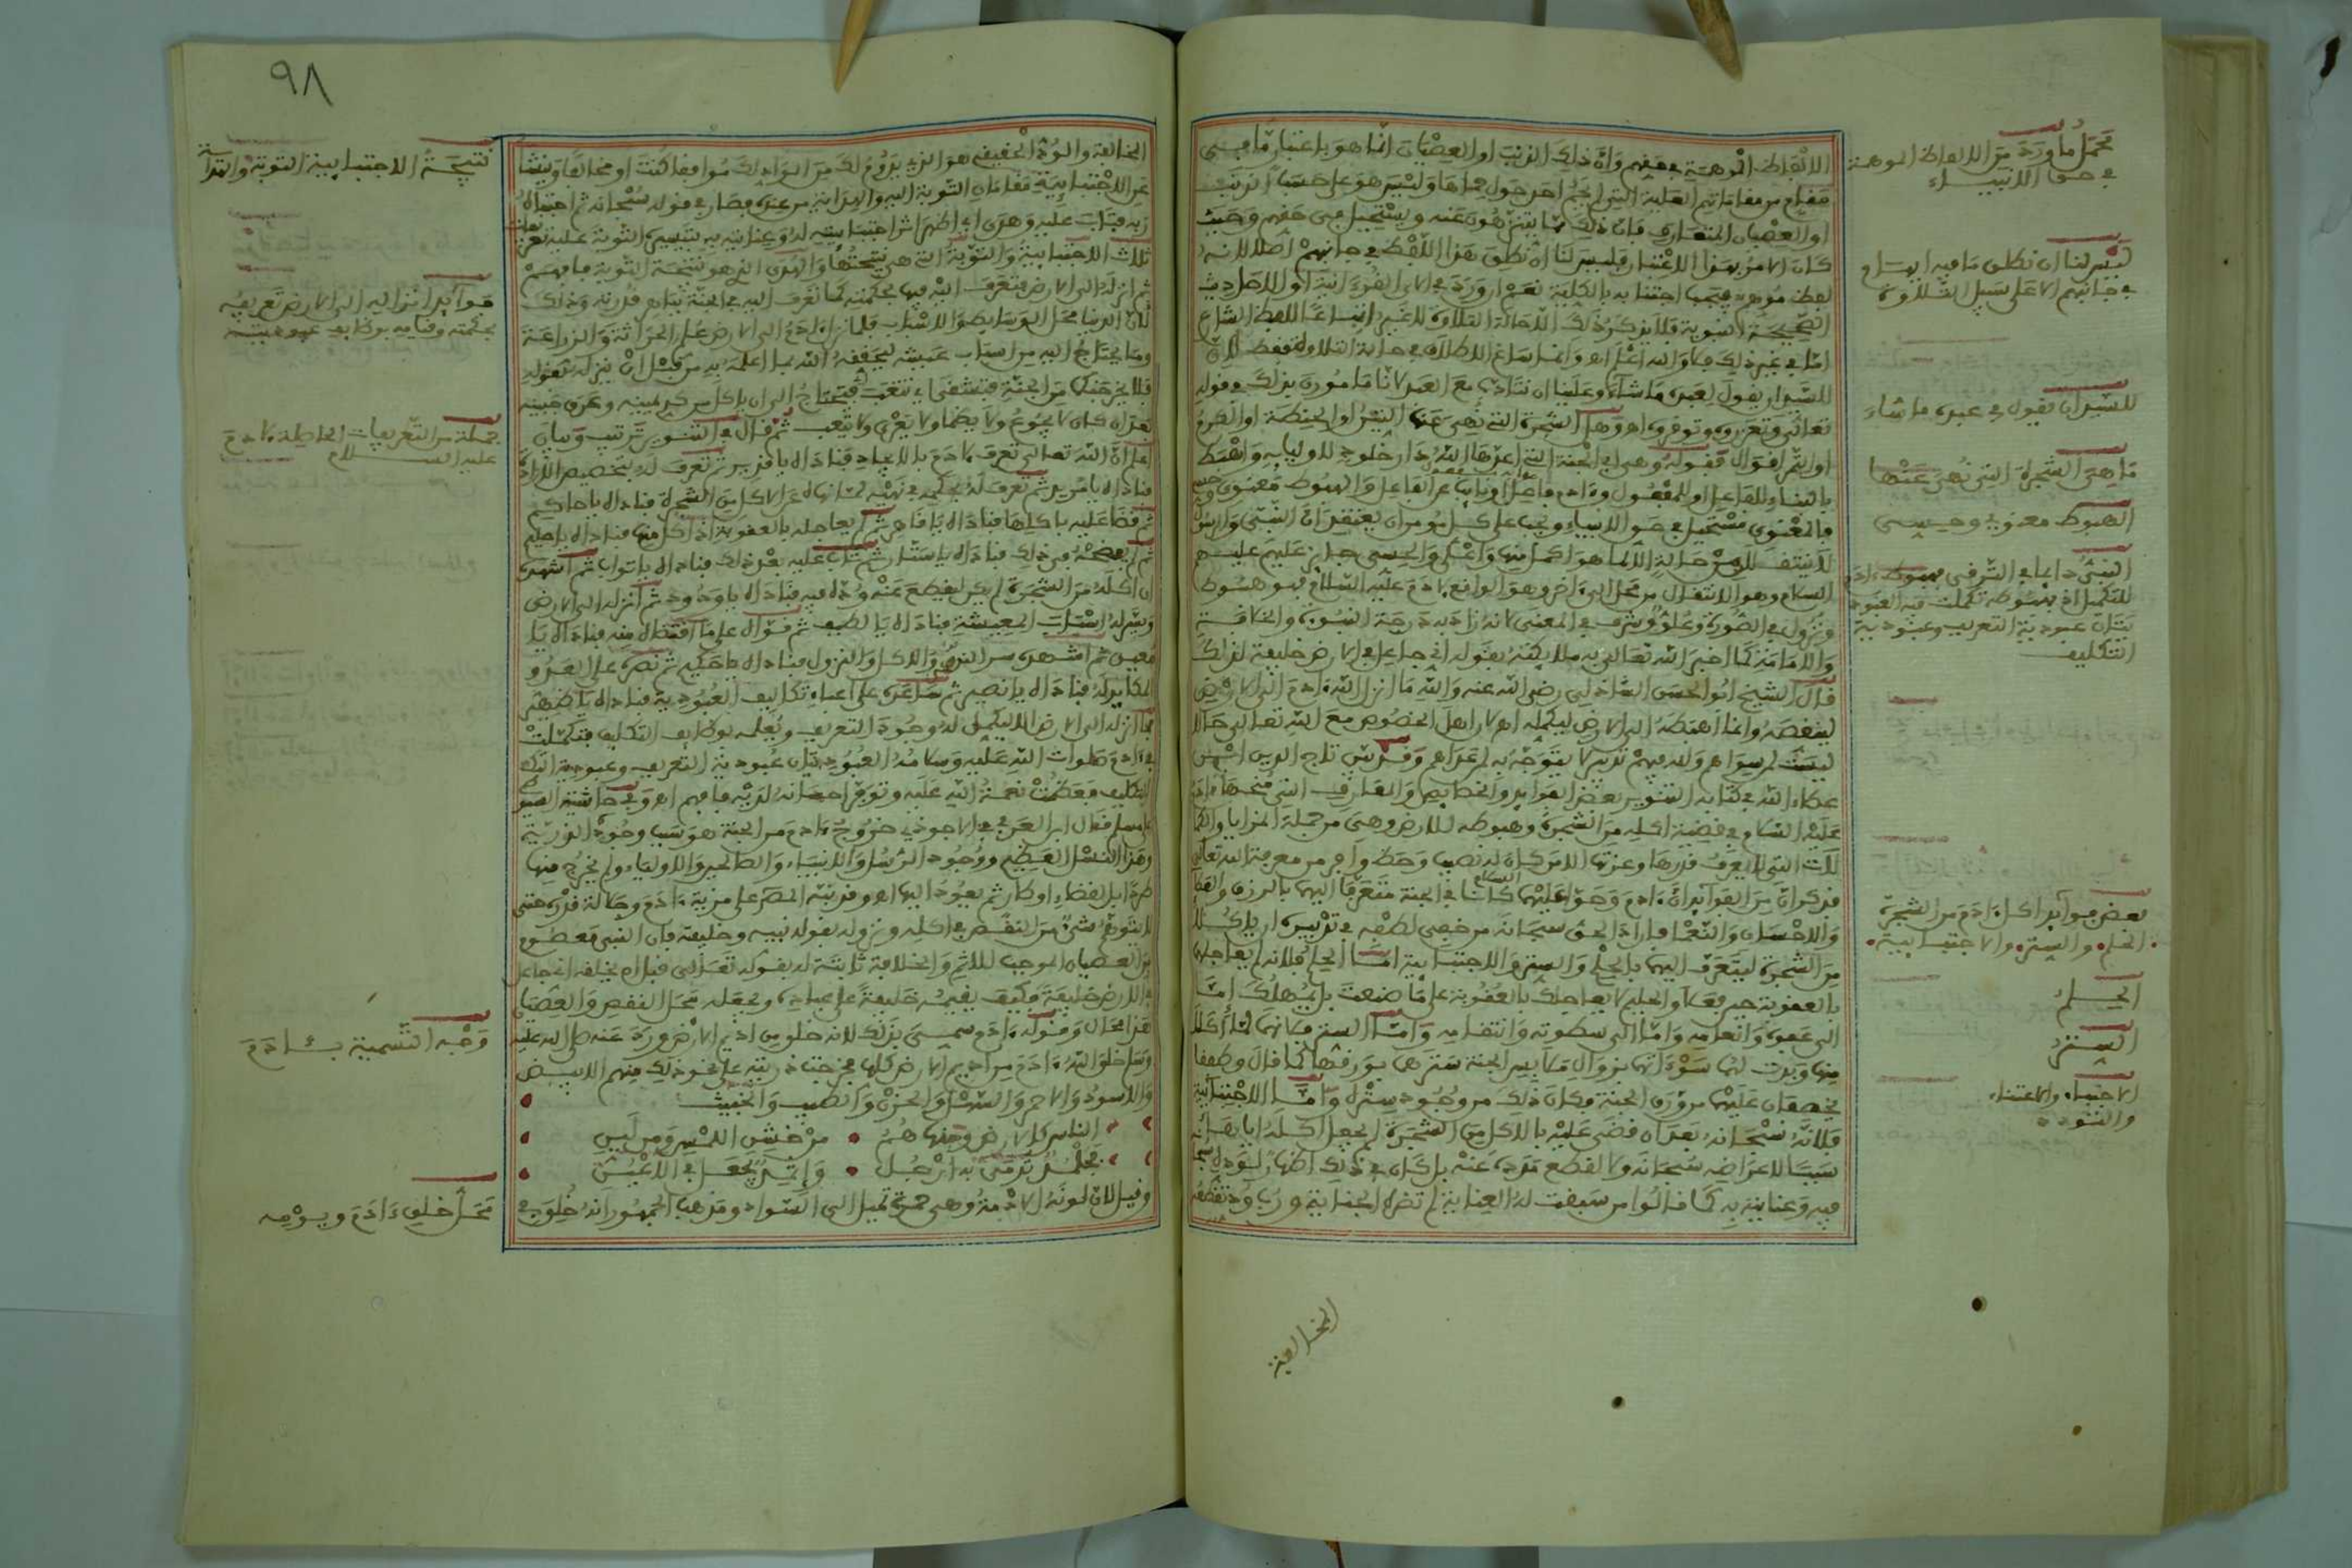 الالفاظ الموهمة في حقهم وان ذلك الذنب او العصيان انما هو باعتبار ما في
مقام من مقاماتهم العلية التي لم يحم احد حول حماها وليس هو على حسب الذنب
او العصيان المتعارف فان ذلك مما يتنزهون عنه ويستحيل في حقهم وحيث
كان الامر بهذا الاعتبار فليس لنا ان نطلق هذا اللفظ في جانبهم اصلا لانه
لفظ موهم فيجب اجتنابه بالكلية نعم ان ورد في الآي القرءانية او الاحاديث
الصحيحة النبوية فلا يذكر ذلك الا حالة التلاوة لا غير اتباعا للفظ الشارع
اما في غير ذلك فلا والله اعلم اهـ وانما ساغ الاطلاق في حالة التلاوة فقط لان
للسيد ان يقول لعبده ما شاء وعلينا ان نتادب مع العبد لاننا مامورون بذلك في قوله
تعالى وتعزروه وتوقروه اهـ وهل الشجرة التي نهي عنها التين او الحنطة او الكرم
او الاترج اقوال فقوله وهي الجنة التي اعدها الله دار خلود لاوليائه واهبط
بالبناء للفاعل او للمفعول وءادم فاعل او نائب عن الفاعل والهبوط معنوي وحسي
فالمعنوي مستحيل في حق الانبياء ويجب على كل مومن ان يعتقد ان النبي والرسول
لا ينتقل من حالة الا لما هو اكمل منها واعلى والحسي جائز عليهم عليهم
السلام وهو الانتقال من محل الى ءاخر وهو الواقع لادم عليه السلام فهو هبوط
ونزول في الصورة وعلو وشرف في المعنى لانه زاد به درجة النبوة والخلافة
والامامة كما اخبر الله تعالى به ملائكته بقوله اني جاعل في الارض خليفة لذلك
قال الشيخ ابو الحسن الشاذلي رضي الله عنه والله ما انزل الله ءادم الى الارض
لينقصه وانما اهبطه الى الارض ليكمله اهـ لان اهل الخصوص مع الله تعالى حالا
ليست لسواهم وله فيهم تدبير لا يتوجه به لمن عداهم وقد بين تاج الدين ابن
عطاء الله في كتابه التنوير بعض الفوائد والخصائص والمعارف التي منحها ءادم
عليه السلام في قضية اكله من الشجرة وهبوطه للارض وهي من جملة المزايا والكما
لات التي لا يعرف قدرها وعزتها الا من كان له نصيب وحظ وافر من معرفة الله تعالى
فذكر ان من الفوائد ان ءادم وحوا عليهما السلام كانا في الجنة متعرفا اليهما بالرزق والعطا
والاحسان والنعما فاراد الحق سبحانه من خفي لطفه في تدبيره ان ياكلا
من الشجرة ليتعرف اليهما بالحلم والستر والاجتبائية اما الحلم فلانه لم يعاجلهما
بالعقوبة حين فعلا والحليم لا يعاجلك بالعقوبة على ما صنعت بل يمهلك اما
الى عفوه وانعامه واما الى سطوته وانتقامه واما الستر فكانهما لما اكلا
منها وبدت لهما سوءاتهما بزوال ملابس الجنة سترهما بورقها كما قال وطفقا
يخصفان عليهما من ورق الجنة فكان ذلك من وجود ستره واما الاجتبائية
فلانه سبحانه بعد ان قضى عليه بالاكل من الشجرة لم يجعل اكله اياها
سببا للاعراضه سبحانه ولا لقطع مدده عنه بل كان في ذلك اظهار لوده
فيه وعنايته به كما قالوا من سبقت له العناية لم تضره الجناية ورب ود تقطعه
المخالفة
محمل ما ورد من الالفاظ الموهمة
في حق الانبياء
ليس لنا ان نطلق ما فيه ايهام
في جانبهم الا على سبيل التلاوة
للسيد ان يقول في عبده ما شاء
ما هي الشجرة التي نهي عنها
الهبوط معنوي وحسي
النبي دائما في الترقي فهبوط ءادم
للتكميل اذ بهبوطه تكملت فيه العبود
يتان عبودية التعريف وعبودية
التكليف
بعض فوائد اكل ءادم من الشجرة
الحلم والستر والاجتبائية
الحلم
الستر
الاجتباء والاعتناء
والتودد
٩٨
المخالفة والود الحقيقي هو الذي يدوم لك من الواد لك موافقا كنت او مخالفا وينشا
عن الاجتبائية مقامان التوبة اليه والهداية من عنده فصار في قوله سبحانه ثم اجتباه
ربه فتاب عليه وهدى اي اظهر اثر اجتبائيته له وعنايته به بتيسير التوبة عليه
ثلاث الاجتبائية والتوبة التي هي نتيجتها والهدى الذي هو نتيجة التوبة فافهم
ثم انزله الى الارض فتعرف اليه فيها بحكمته كما تعرف اليه في الجنة بباهر قدرته وذلك
لان الدنيا محل الوسائط والاسباب فلما نزل ءادم الى الارض علم الحراثة والزراعة
وما يحتاج اليه من اسباب عيشه ليحققه الله بما اعلمه به من قبل ان ينزله بقوله
فلا يخرجنكما من الجنة فتشقى اي تتعب فتحتاج الى ان ياكل من كد يمينه وعرق جبينه
بعد ان كان لا يجوع ولا يظما ولا يعرى ولا يتعب ثم قال في التنوير ترتيب وبيان
اعلم ان الله تعالى تعرف لادم بالايجاد فناداه يا قدير ثم تعرف له بتخصيص الارادة
فناداه يا مريد ثم تعرف له بحكمه في نهيه لما نهاه عن الاكل من الشجرة فناداه يا حاكم
ثم قضا عليه باكلها فناداه يا قاهر ثم لم يعاجله بالعقوبة اذ اكل منها فناداه يا حليم
ثم لم يفضحه في ذلك فناداه يا ستار ثم تاب عليه بعد ذلك فناداه يا تواب ثم اشهده
ان اكله من الشجرة لم يكن ليقطع عنه وده فيه فناداه يا ودود ثم انزله الى الارض
ويسر له اسباب المعيشة فناداه يا لطيف ثم قواه على ما اقتضاه منه فناداه يا
معين ثم اشهده سر النهي والاكل والنزول فناداه يا حكيم ثم نصره على العدو
المكايد له فناداه يا نصير ثم ساعده على اعباء تكاليف العبودية فناداه يا ظهير
فما انزله الى الارض الا ليكمل له وجود التعريف ويقيمه بوظايف التكليف فتكملت
في ءادم صلوات الله عليه وسلامه العبوديتان عبودية التعريف وعبودية
التكليف فعظمت نعمة الله عليه وتوفر احسانه لديه فافهم اهـ وفي حاشية السيو
على مسلم فقال ابن العربي في الاحوذي خروج ءادم من الجنة هو سبب وجود الذرية
وهذا النسل العظيم ووجود الرسل والانبياء والصالحين والاولياء ولم يخرج منها
طردا بل لقضاء اوطار ثم يعود اليها اهـ وقد نبه المص على مزية ءادم وجلالة قدره حتى
لا يتوهم شيء من النقص في اكله ونزوله بقوله نبيه وخليفه فان النبي معصوم
من العصيان الموجب للاثم والخلافة ثابتة له بقوله تعالى قبل ان يخلقه اني جاعل
في الارض خليفة فكيف يقيمه خليفة على عباده ويجعله محل النقص والعصيان
هذا محال وقوله ءادم سمي بذلك لانه خلق من اديم الارض ورد عنه صلى الله عليه
وسلم خلق الله ءادم من اديم الارض كلها فخرجت ذريته على نحو ذلك منهم الابيض
والاسود والاحمر والسهل والحزن والطيب والخبيث
الناس كالارض ومنها هم • من خشن اللمس ومن لين
فجلمد تدمى به ارجل • واثمد يجعل في الاعين
وقيل لان لونه الادمة وهي حمرة تميل الى السواد ومذهب الجمهور انه خلق في
نتيجة الاجتبائية التوبة والهداية
فوائد انزاله الى الارض تعريفه
بحكمته وقيامه بوظايف عبوديته
جملة من التعريفات الحاصلة لادم
عليه السلام
وجه التسمية بـئادم
محل خلق ءادم ويومه